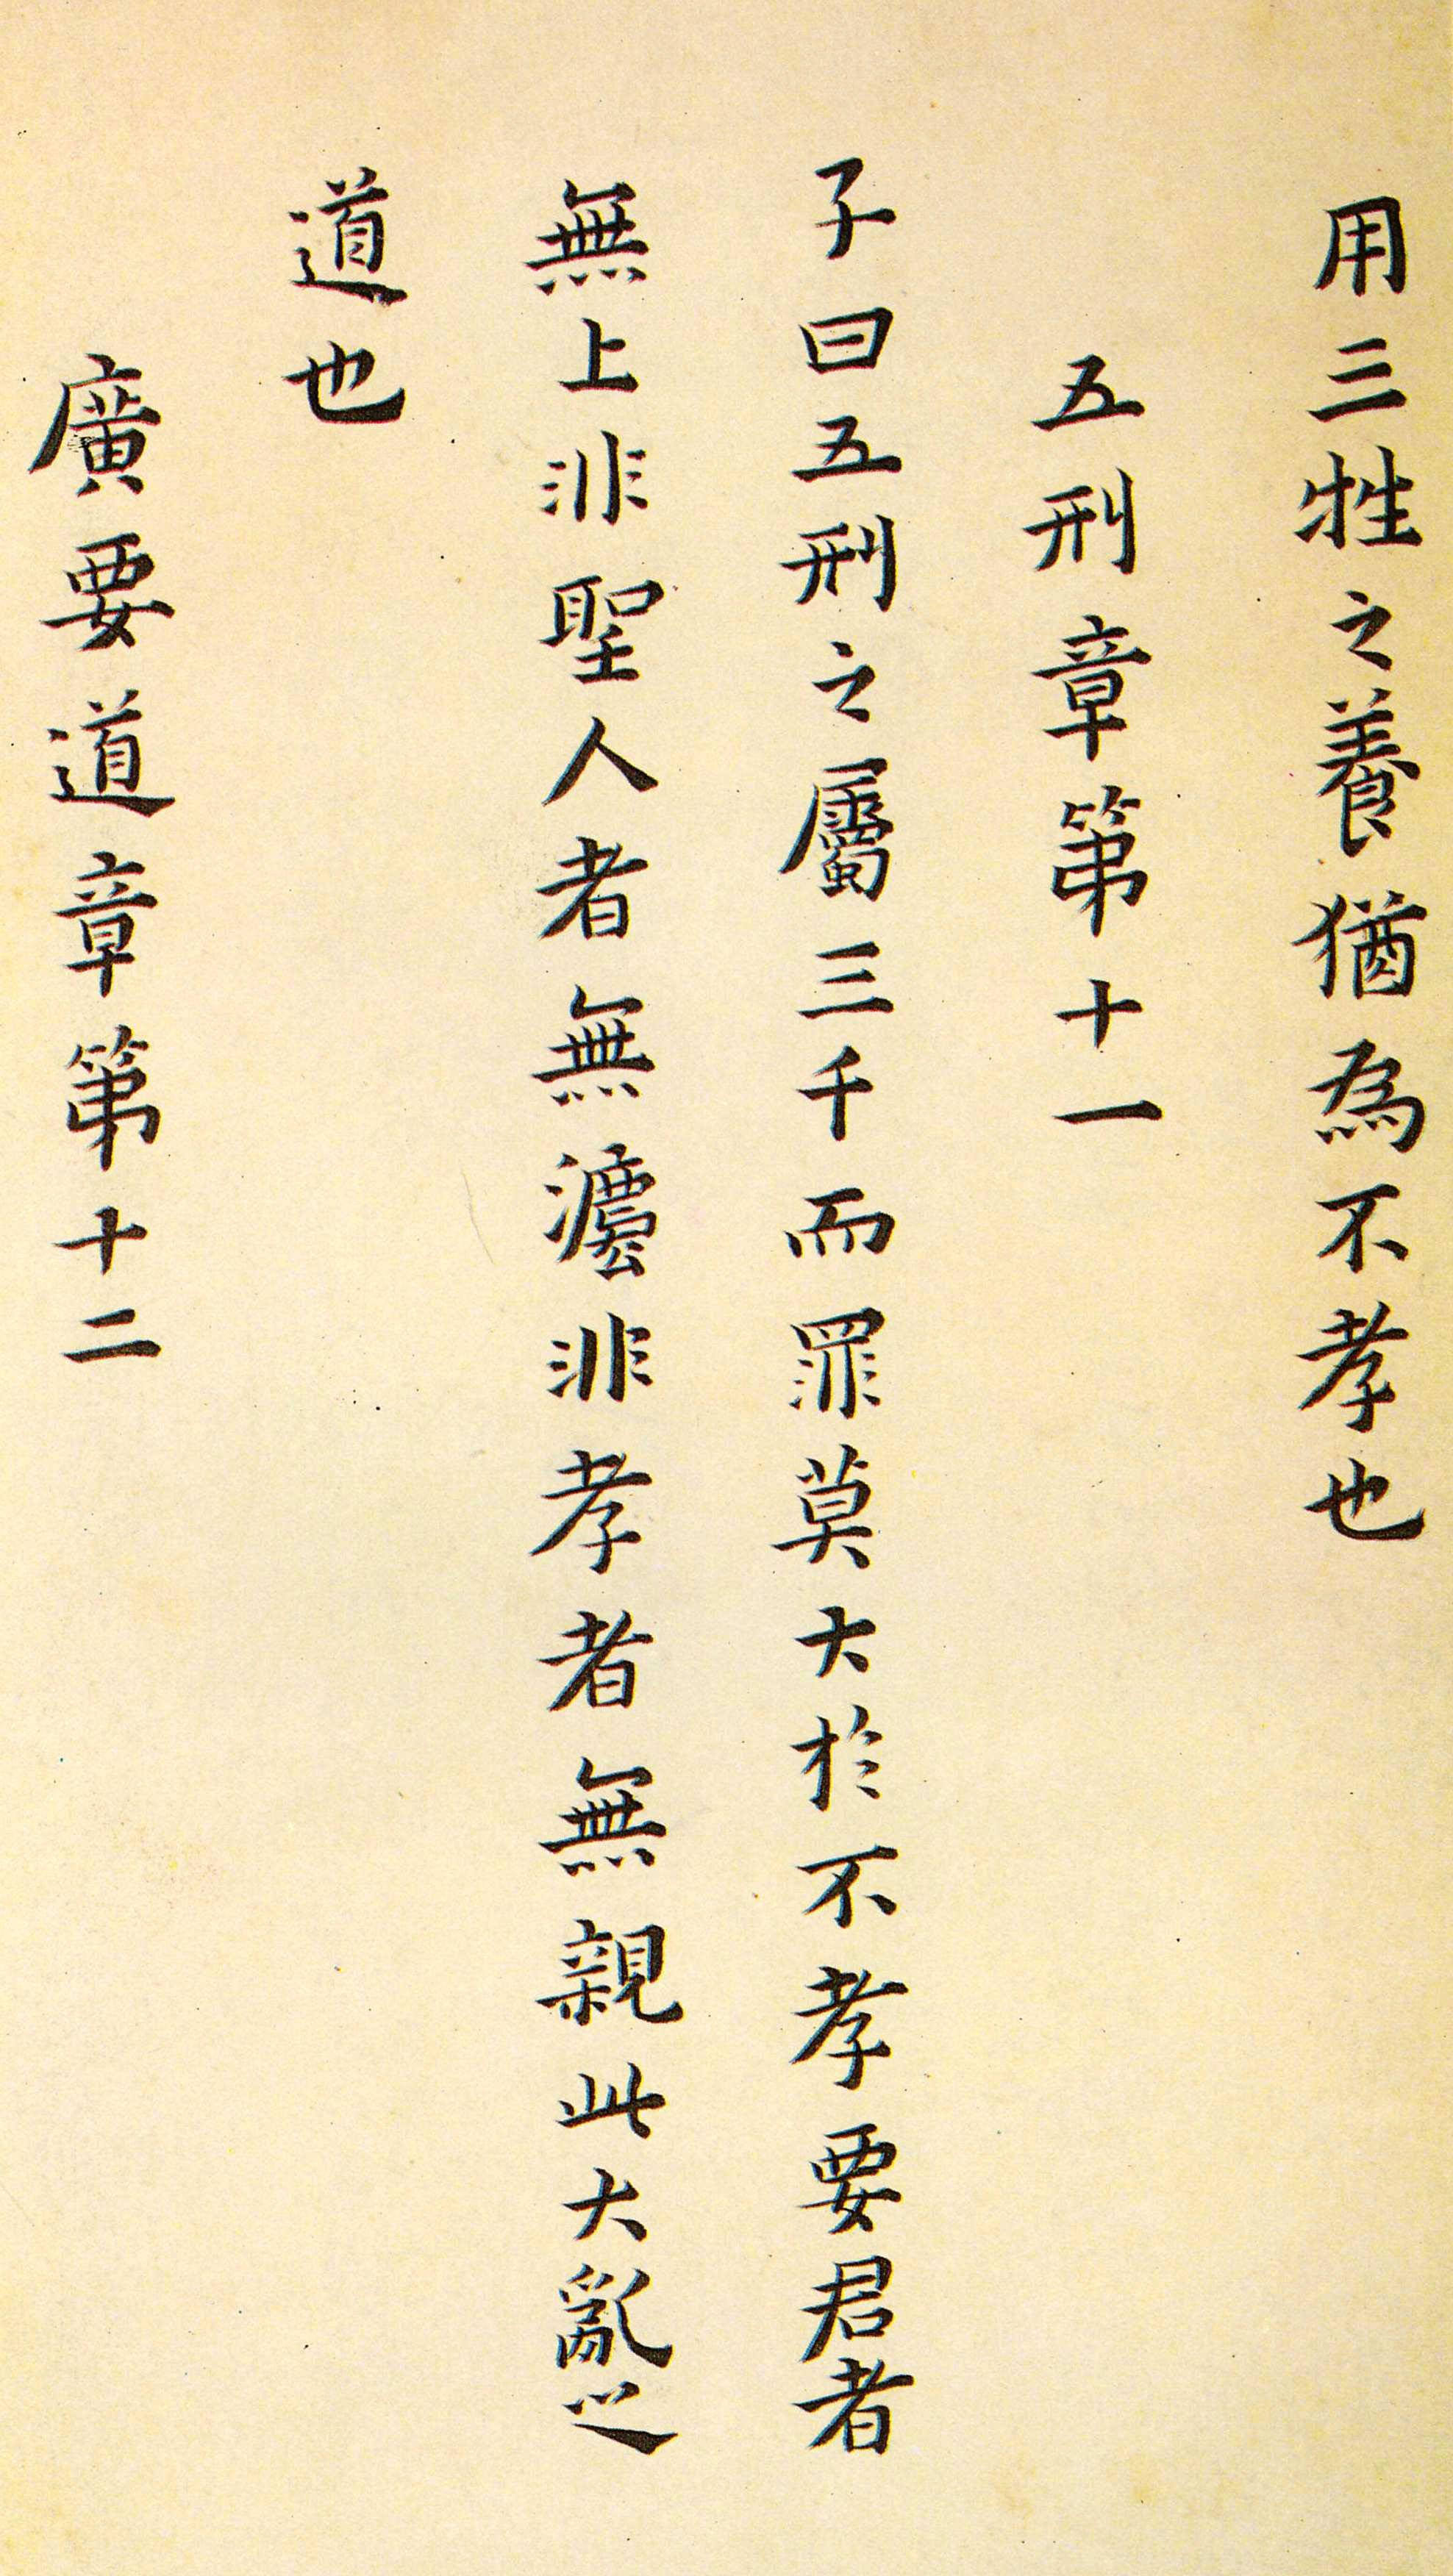 用三牲之養猶為不孝也
五刑章第十一
子曰五刑之屬三千而罪莫大於不孝要君者
無上非聖人者無灋非孝者無親此大亂之
道也
廣要道章第十二